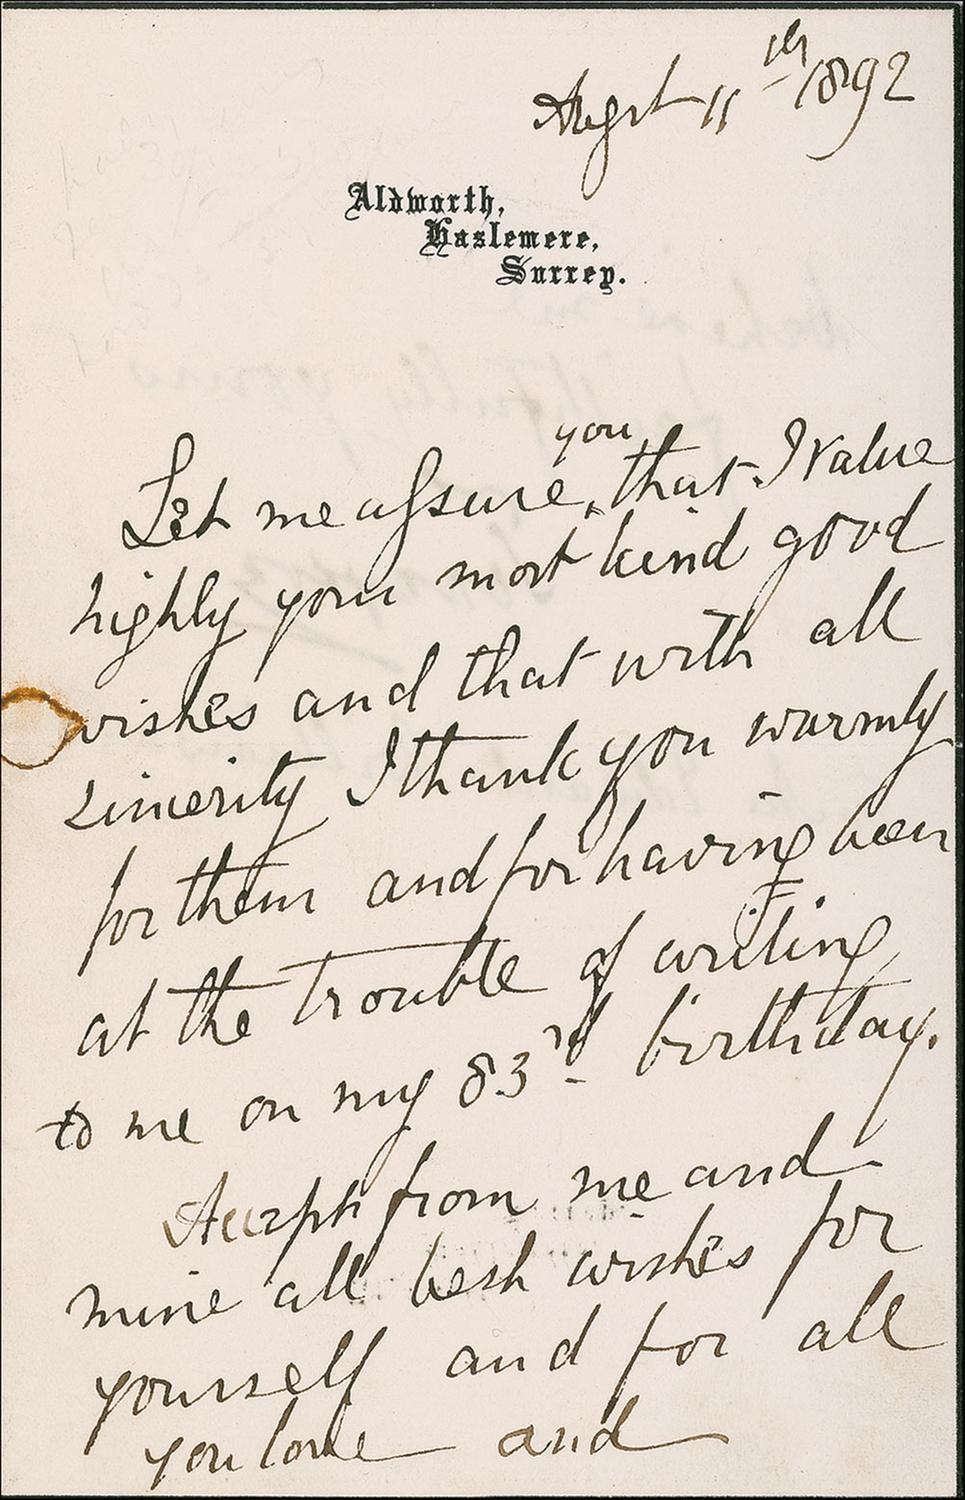 Augst 11th 1892
Aldworth,
Haslemere,
Surrey.
you
Let me assure ‸ that I value
highly your most kind good
wishes and that with all
sincerity I thank you warmly
for them and for having been
at the trouble of writing
to me on my 83rd birthday.
Accept from me and
mine all best wishes for
yourself and for all
you love and